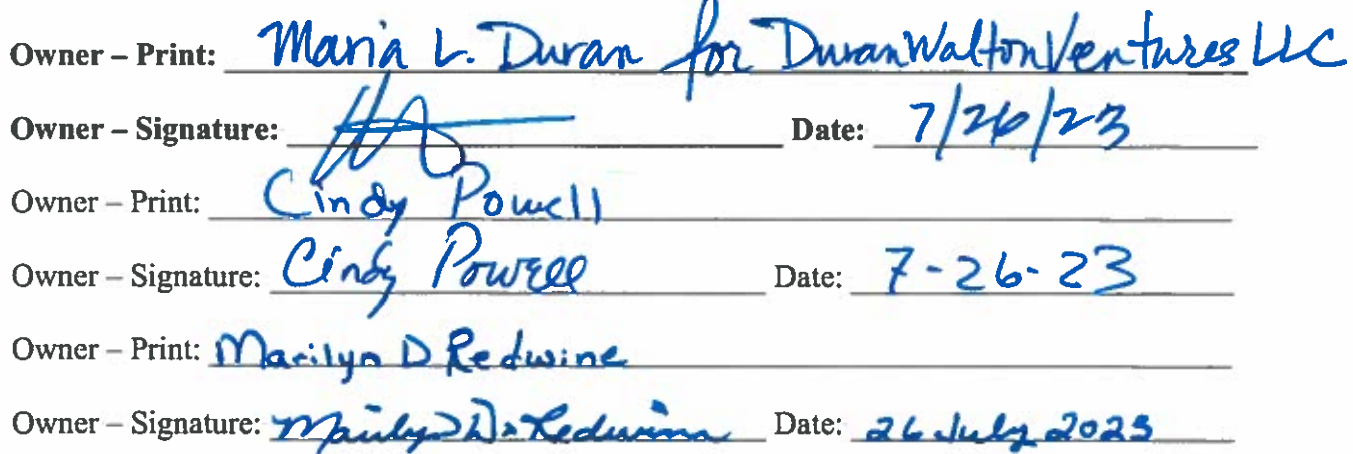 Owner – Print: Maria L. Duran for DuranWaltonVentures LLC
Owner – Signature: Date: 7/26/23
Owner – Print: Cindy Powell
Owner – Signature: Cindy Powell Date: 7-26-23
Owner – Print: Marilyn D Redwine
Owner – Signature: Marilyn D. Redwine Date: 26 July 2023